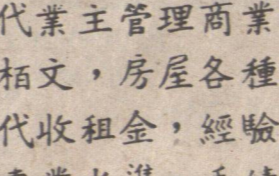 代業主管理商業
栢文，房屋各種
代收租金，經驗